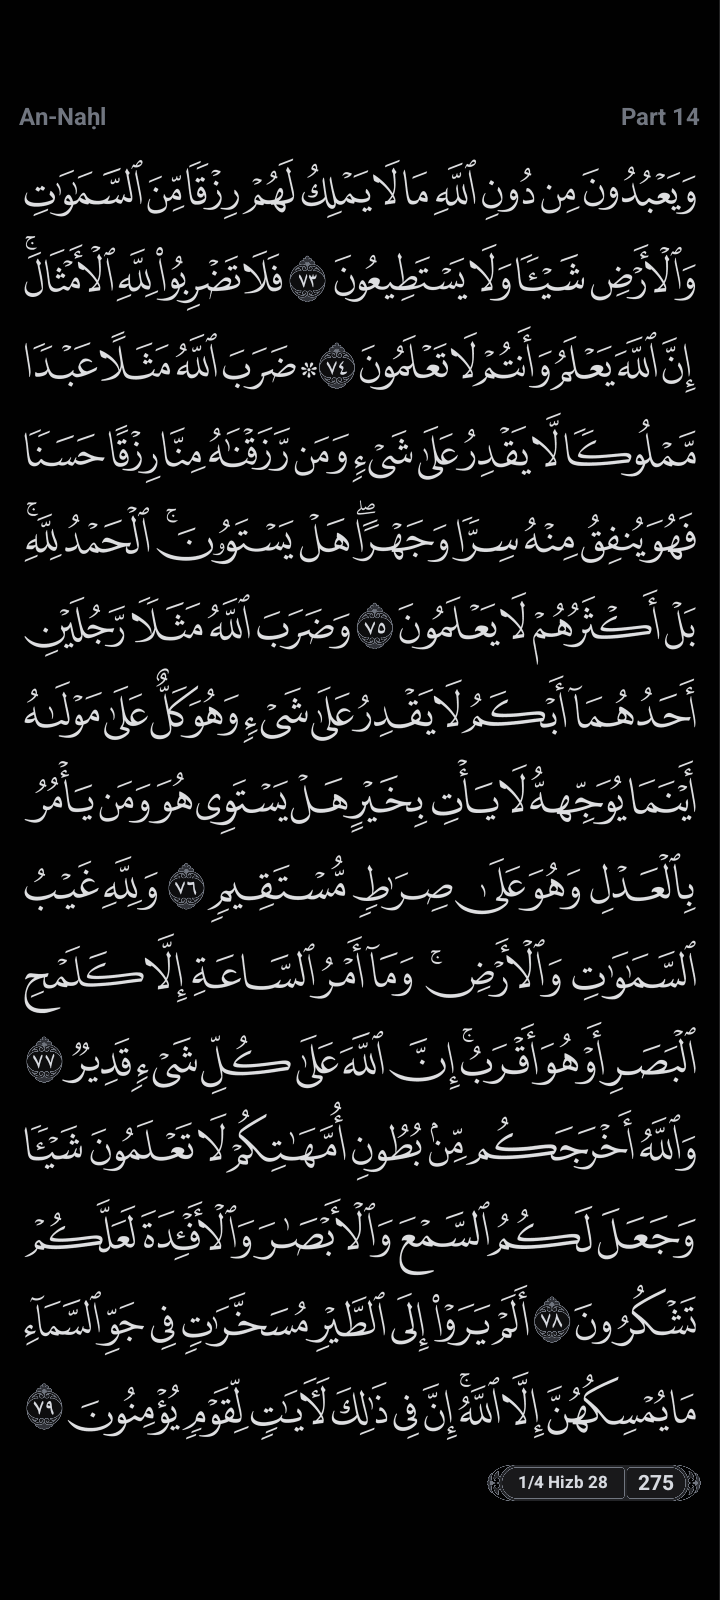 An-Naḥl Part 14
وَيَعْبُدُونَ مِن دُونِ ٱللَّهِ مَا لَا يَمْلِكُ لَهُمْ رِزْقًا مِّنَ ٱلسَّمَٰوَٰتِ
وَٱلْأَرْضِ شَيْـًٔا وَلَا يَسْتَطِيعُونَ ٧٣ فَلَا تَضْرِبُوا۟ لِلَّهِ ٱلْأَمْثَالَ ۚ
إِنَّ ٱللَّهَ يَعْلَمُ وَأَنتُمْ لَا تَعْلَمُونَ ٧٤ * ضَرَبَ ٱللَّهُ مَثَلًا عَبْدًا
مَّمْلُوكًا لَّا يَقْدِرُ عَلَىٰ شَىْءٍ وَمَن رَّزَقْنَٰهُ مِنَّا رِزْقًا حَسَنًا
فَهُوَ يُنفِقُ مِنْهُ سِرًّا وَجَهْرًا ۖ هَلْ يَسْتَوُۥنَ ۚ ٱلْحَمْدُ لِلَّهِ ۚ
بَلْ أَكْثَرُهُمْ لَا يَعْلَمُونَ ٧٥ وَضَرَبَ ٱللَّهُ مَثَلًا رَّجُلَيْنِ
أَحَدُهُمَآ أَبْكَمُ لَا يَقْدِرُ عَلَىٰ شَىْءٍ وَهُوَ كَلٌّ عَلَىٰ مَوْلَىٰهُ
أَيْنَمَا يُوَجِّههُّ لَا يَأْتِ بِخَيْرٍ هَلْ يَسْتَوِى هُوَ وَمَن يَأْمُرُ
بِٱلْعَدْلِ وَهُوَ عَلَىٰ صِرَٰطٍ مُّسْتَقِيمٍ ٧٦ وَلِلَّهِ غَيْبُ
ٱلسَّمَٰوَٰتِ وَٱلْأَرْضِ ۚ وَمَآ أَمْرُ ٱلسَّاعَةِ إِلَّا كَلَمْحِ
ٱلْبَصَرِ أَوْ هُوَ أَقْرَبُ ۚ إِنَّ ٱللَّهَ عَلَىٰ كُلِّ شَىْءٍ قَدِيرٌ ٧٧
وَٱللَّهُ أَخْرَجَكُم مِّنۢ بُطُونِ أُمَّهَٰتِكُمْ لَا تَعْلَمُونَ شَيْـًٔا
وَجَعَلَ لَكُمُ ٱلسَّمْعَ وَٱلْأَبْصَٰرَ وَٱلْأَفْـِٔدَةَ لَعَلَّكُمْ
تَشْكُرُونَ ٧٨ أَلَمْ يَرَوْا۟ إِلَى ٱلطَّيْرِ مُسَخَّرَٰتٍ فِى جَوِّ ٱلسَّمَآءِ
مَا يُمْسِكُهُنَّ إِلَّا ٱللَّهُ ۚ إِنَّ فِى ذَٰلِكَ لَـَٔايَٰتٍ لِّقَوْمٍ يُؤْمِنُونَ ٧٩
1/4 Hizb 28 275